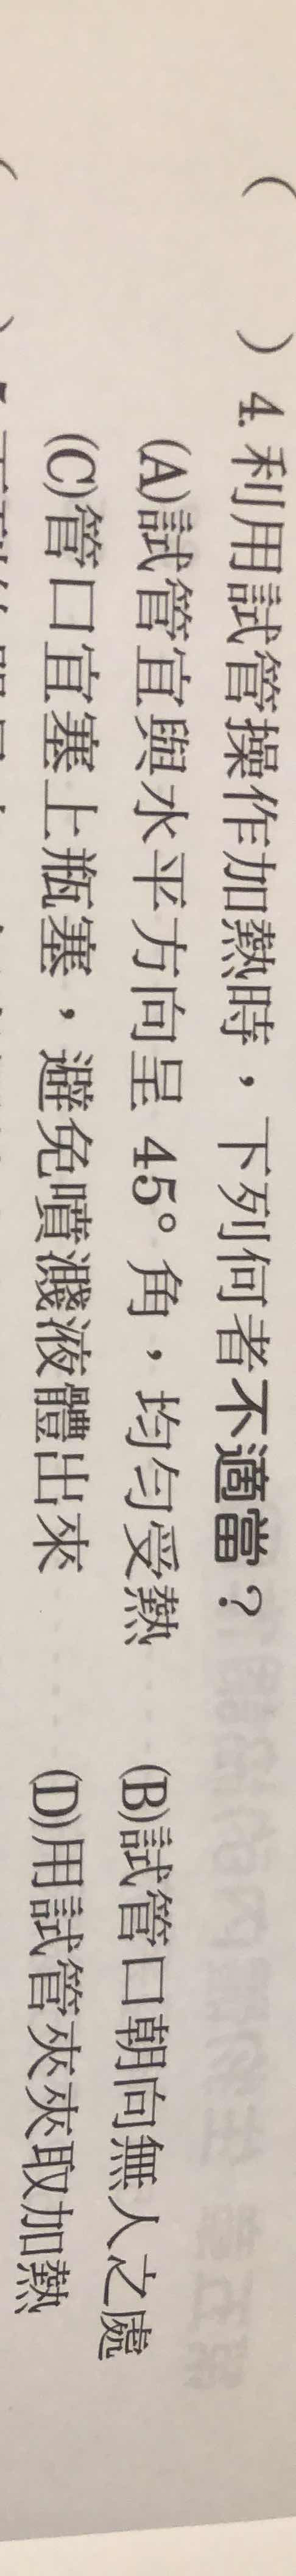 (　　) 4. 利用試管操作加熱時，下列何者不適當？
(A)試管宜與水平方向呈 45° 角，均勻受熱　(B)試管口朝向無人之處
(C)管口宜塞上瓶塞，避免噴濺液體出來　(D)用試管夾夾取加熱